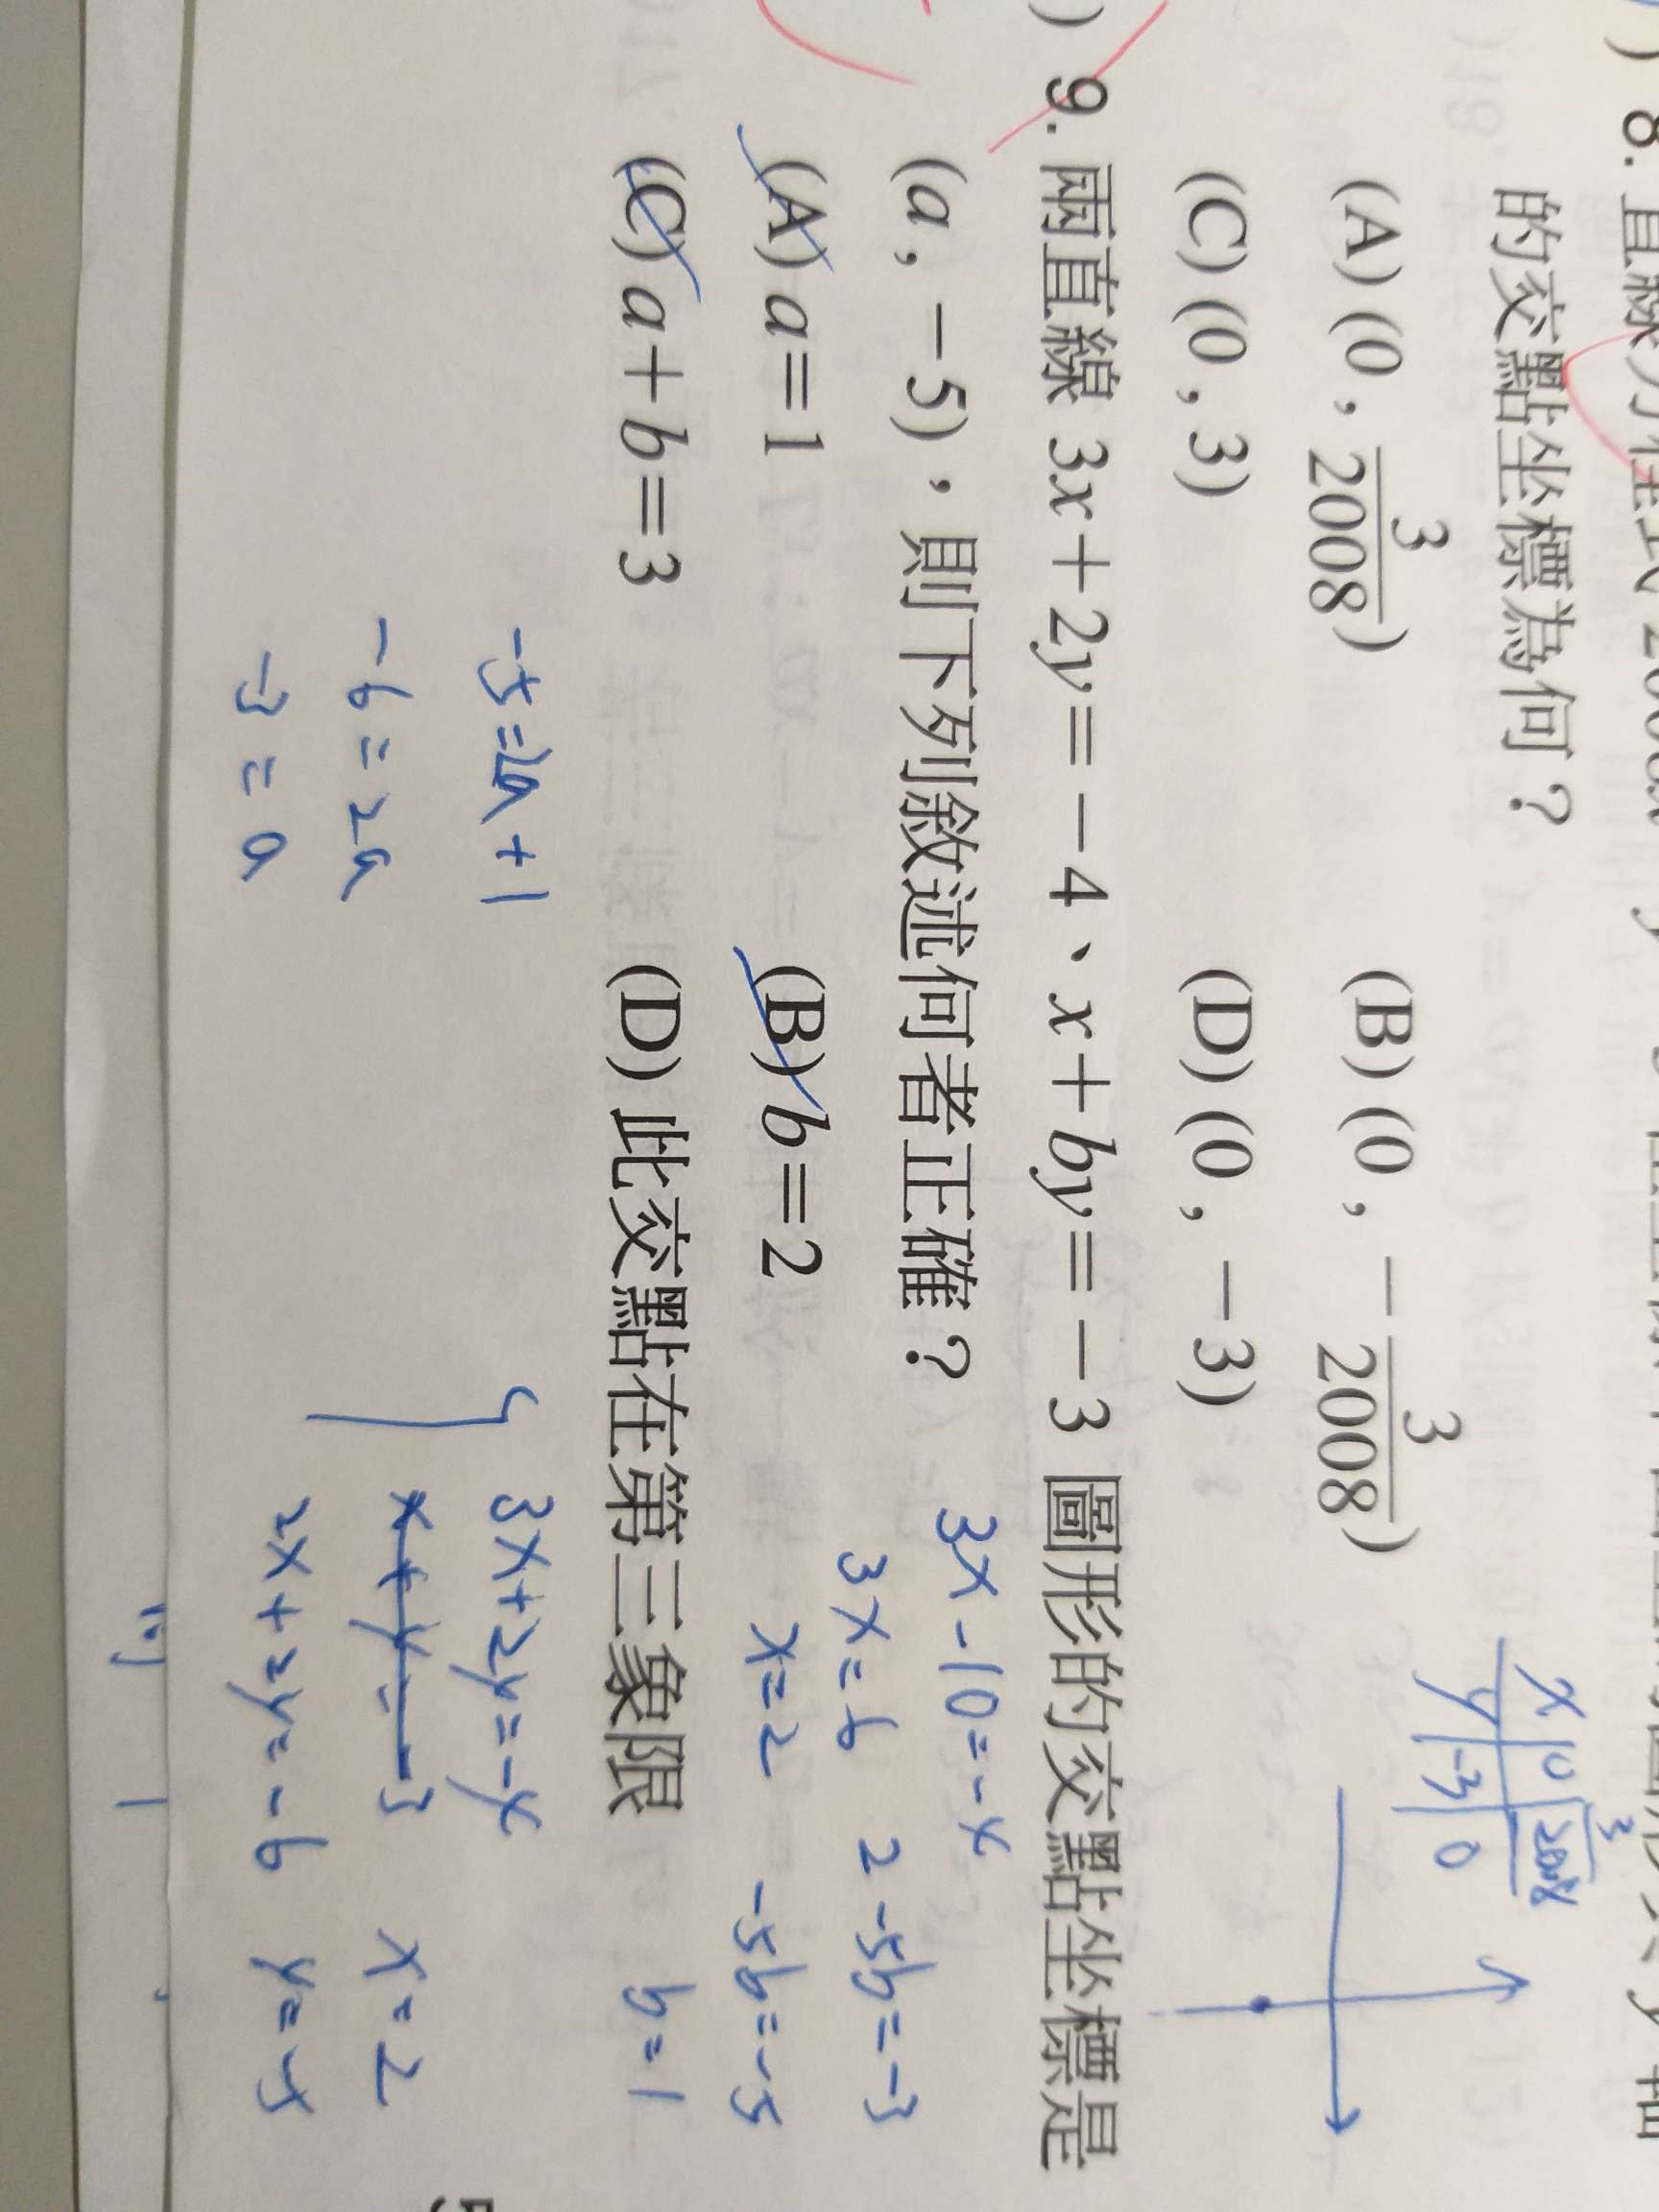 8. 直線方程式 2008x
的交點坐標為何？
(A) (0 , 3/2008) (B) (0 , －3/2008)
(C) (0 , 3) (D) (0 , －3)
x 0 3/2008
y -3 0
9. 兩直線 3x＋2y＝－4、x＋by＝－3 圖形的交點坐標是
(a , －5)，則下列敘述何者正確？
(A) a＝1 (B) b＝2
(C) a＋b＝3 (D) 此交點在第三象限
3x-10=-4
3x=6
x=2
2-5b=-3
-5b=-5
b=1
-5=2a+1
-6=2a
-3=a
3x+2y=-4
x+y=-3
2x+2y=-6
x=2
y=-5